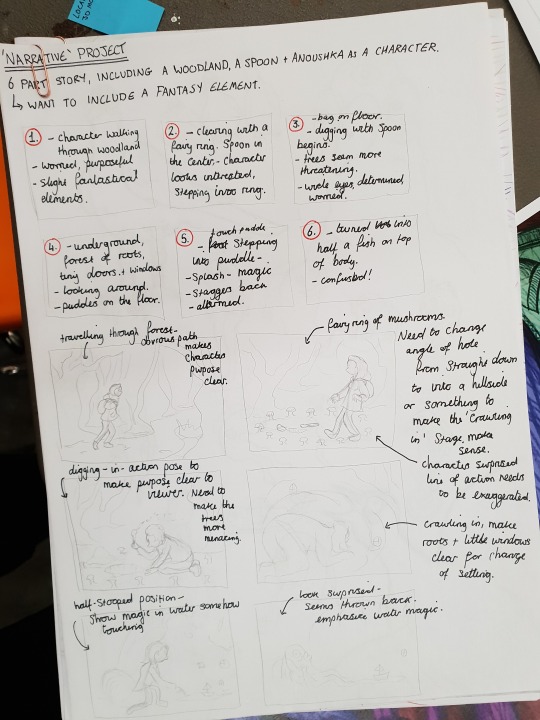 LOCA
'NARRATIVE' PROJECT
6 PART STORY, INCLUDING A WOODLAND, A SPOON + ANOUSHKA AS A CHARACTER.
↳ WANT TO INCLUDE A FANTASY ELEMENT.
1. - character walking
through woodland
- worried, purposeful
- slight fantastical
elements.
2. - clearing with a
fairy ring. Spoon in
the center. - character
looks interested,
stepping into ring.
3. - bag on floor.
- digging with spoon
begins.
- trees seem more
threatening.
- wide eyes, determined
worried.
4. - underground,
forest of roots,
tiny doors + windows
- looking around.
- puddles on the floor.
5. touch puddle.
- Stepping
into puddle -
- Splash - magic
- Staggers back
- alarmed.
6. - turned into
half a fish on top
of body.
- confusbol!
travelling through forest -
obvious path
makes
character
purpose
clear.
fairy ring of mushrooms.
Need to change
angle of hole
from straight down
to into a hillside
or something to
make the 'crawling
in' stage make
sense.
character surprised
line of action needs
to be exaggerated.
digging - in - action pose to
make purpose clear to
viewer. Need to
make the
trees
more
menacing.
crawling in, make
roots + little windows
clear for change
of setting.
half-stooped position -
show magic in water somehow
touching
look surprised -
seems thrown back.
emphasise water magic.